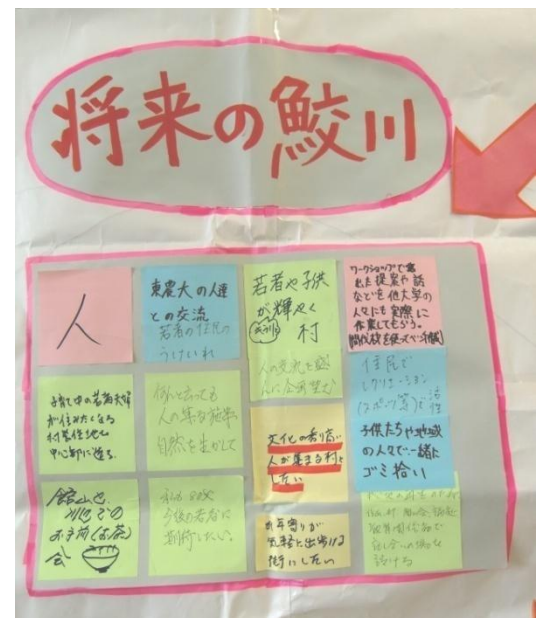 将来の鮫川
人
東農大の人達
との交流
若者の住民の
うけいれ
若者や子供
が輝やく
村
ワークショップで出
された提案や話
などを他大学の
人々にも実際に
作業してもらう。
子育て中の若者夫婦
が住みたくなる
村営住宅地を
中心部に造る。
何んと云っても
人の集る
自然を生かして
文化の香り高い
人が集まる村に
したい
住民で
レクリエーション
(スポーツ等)で
子供たちや地域
の人々で一緒に
ゴミ拾い
館山や
川辺での
お手前(お茶)
会
今後の若者に
期待したい。
お年寄りが
気軽に出歩ける
街にしたい
設ける